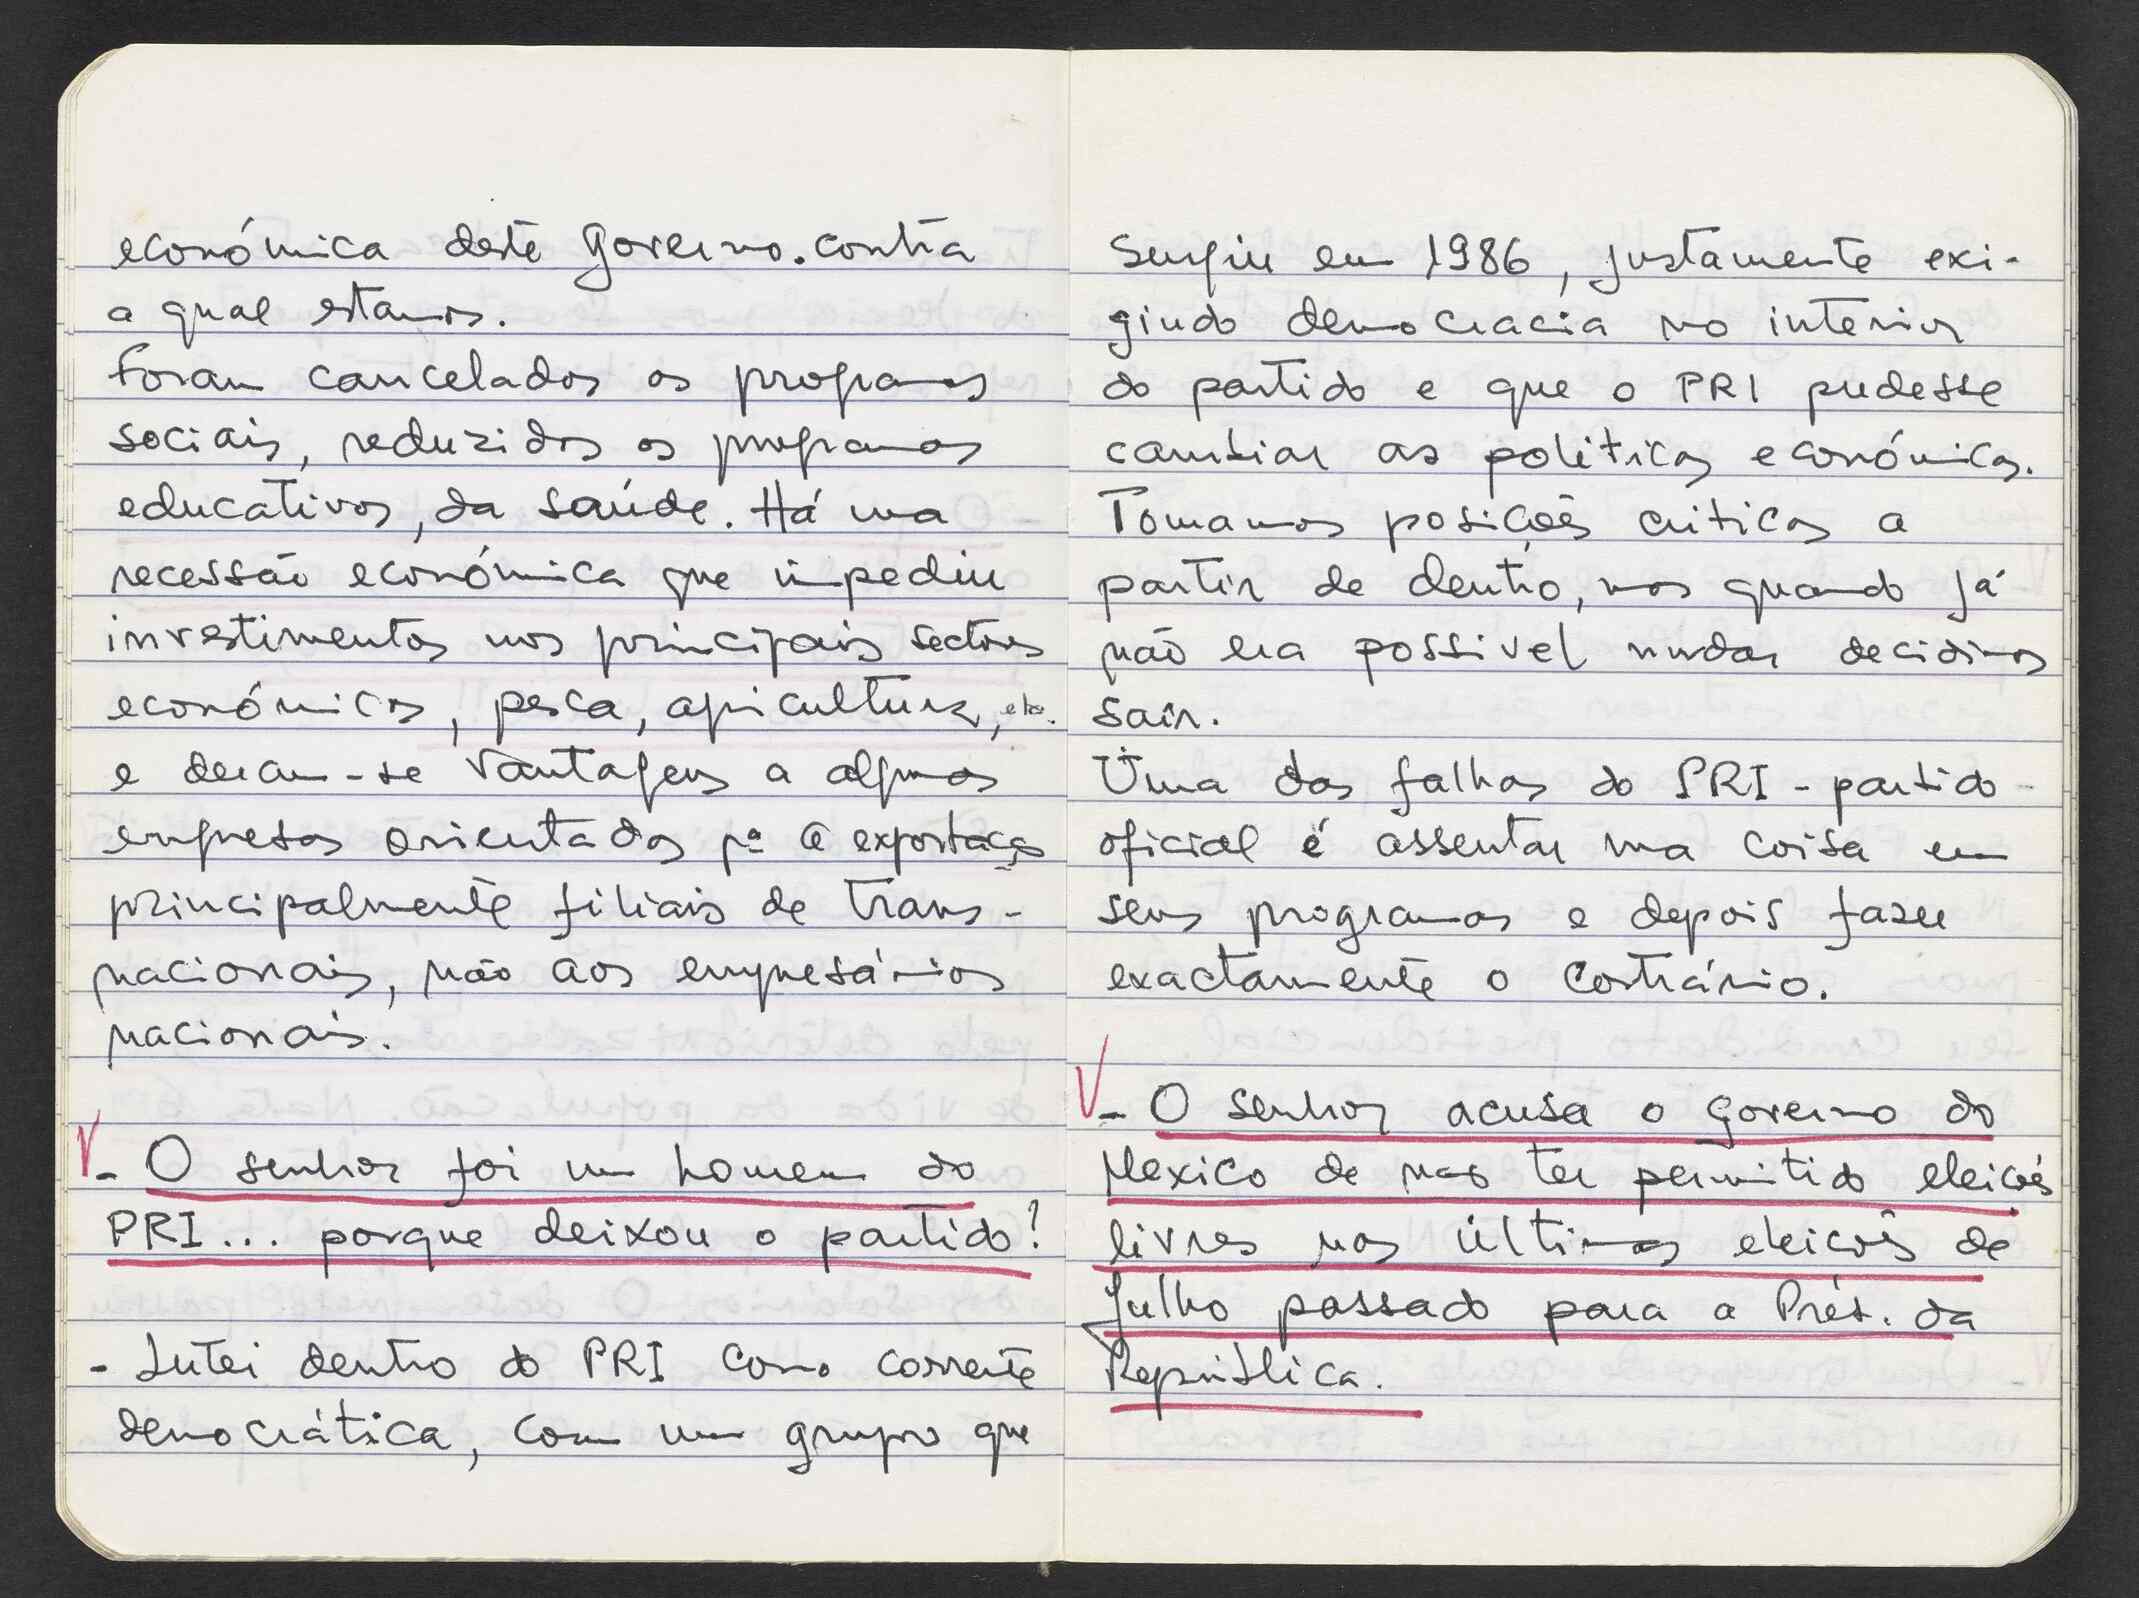 económica deste Governo. contra
a qual estamos.
Foram cancelados os programas
sociais, reduzidos os programas
educativos, da saúde. Há uma
recessão económica que impediu
investimentos nos principais sectores
económicos, pesca, apicultura, etc.
e deram-se vantagens a algumas
empresas orientadas pª a exportação
principalmente filiais de trans-
nacionais, não aos empresários
nacionais.
- O senhor foi um homem do
PRI... porque deixou o partido?
- Lutei dentro do PRI como corrente
democrática, com um grupo que
surgiu em 1986, justamente exi-
gindo democracia no interior
do partido e que o PRI pudesse
cambiar as políticas económicas.
Tomamos posições criticas a
partir de dentro, mas quando já
não era possivel mudar decidimos
sair.
Uma das falhas do PRI - partido -
oficial é assentar uma coisa em
seus programas e depois fazer
exactamente o contrário.
- O senhor acusa o governo do
Mexico de nao ter permitido eleições
livres nas últimas eleições de
Julho passado para a Prés. da
República.